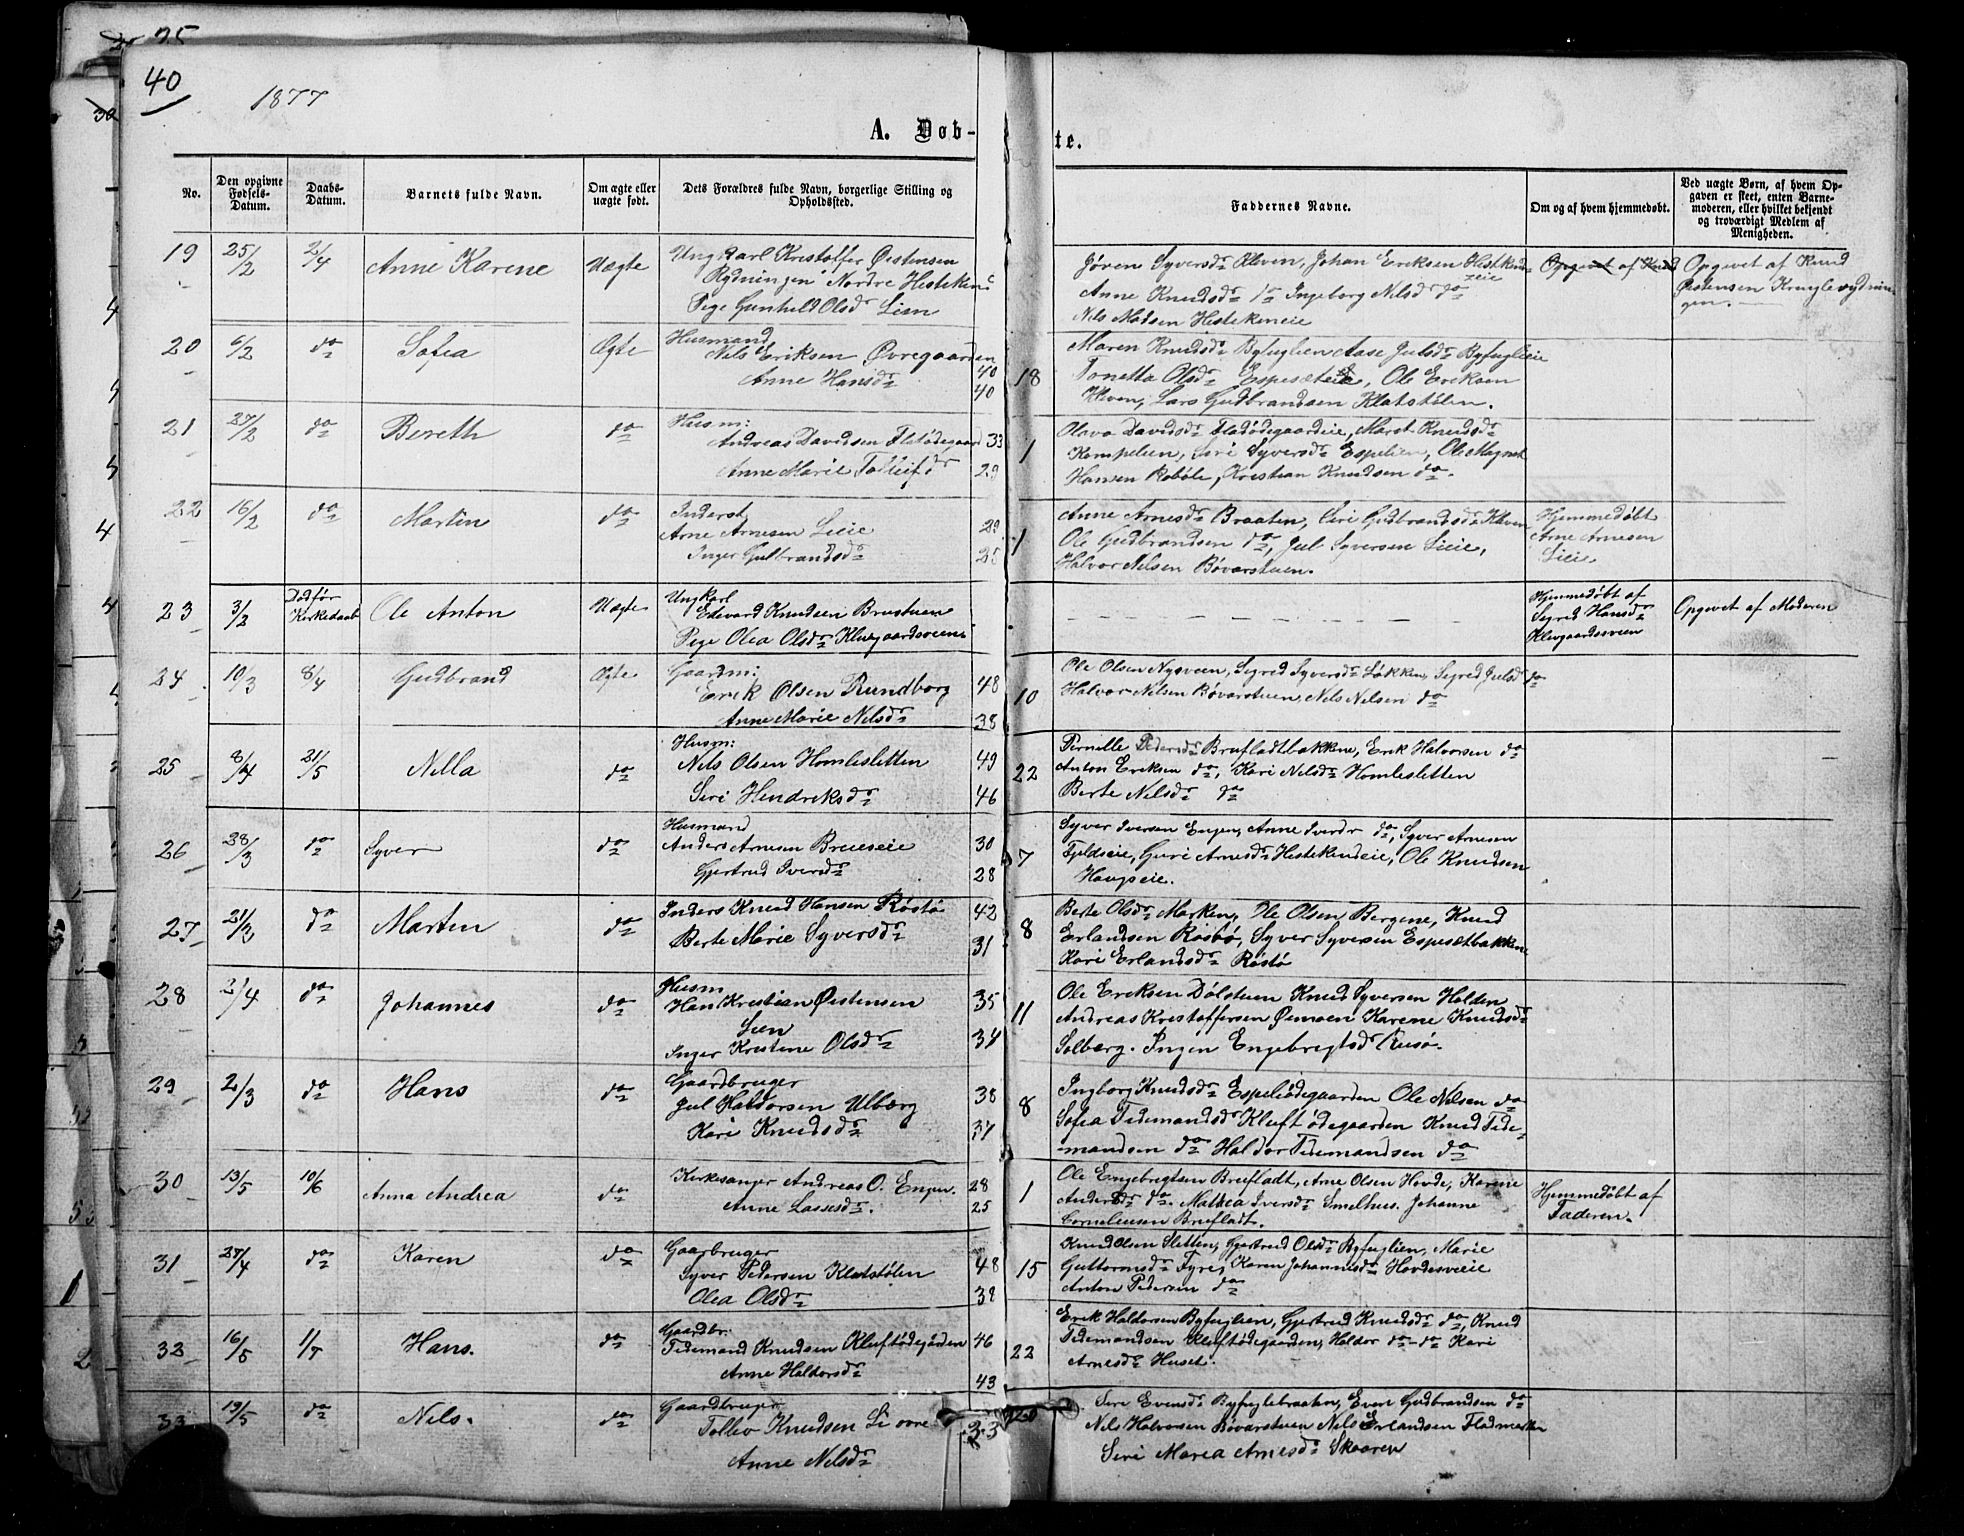 40
1877
A. Døb-
te.
No.
Den opgivne Fødsels-Datum.
Daabs-Datum.
Barnets fulde Navn.
Om ægte eller uægte født.
Dets Forældres fulde Navn, borgerlige Stilling og Opholdssted.
Faddernes Navne.
Om og af hvem hjemmedøbt.
Ved uægte Børn, af hvem Opgaven er skeet, enten Barnemoderen, eller hvilket bekjendt og troværdigt Medlem af Menigheden.
19 25/2 2/4 Anne Karene Uægte
Ungkarl Kristoffer Østensen
Rydningen Nordre Hesteken
Pige Gunhild Olsdr Lien
Jøren Syversdr Kleven, Johan Eriksen Hestken
eie
Anne Knudsdr do Ingeborg Nilsdr do
Nils Madsen Hestekeneie
Opgivet af Knud
Opgivet af Knud
Østensen Kruglerydnin-
gen.
20 6/2 do Sofia Ægte
Husmand
Nils Eriksen Øvregaarden 40
Anne Hansdr 40
18
Maren Knudsdr Byfuglien Aase Julsdr Byfuglieie
Tonetta Olsdr Espesæteie, Ole Eriksen
Kleven, Lars Gudbrandsen Klatstølen.
21 27/2 do Bereth do
Husm:
Andreas Davidsen Fladødegaard 33
Anne Marie Tolleifdr 29
1
Olava Davidsdr Fladødegaardeie, Maret Knudsdr
Kompelien, Siri Syversdr Espelien, Ole Magnus
Hansen Robøle, Kristian Knudsen do.
22 16/2 do Martin do
Inderst
Arne Arnesen Lieie 29
Inger Gulbrandsdr 25
1
Anne Arnesdr Braaten, Siri Gudbrandsdr Kleven
Ole Gudbrandsen do, Jul Syversen Lieie,
Halvor Nilsen Bøvarstuen.
Hjemmedøbt
Arne Arnesen
Lieie
23 3/2 Død før Kirkedaab Ole Anton Uægte
Ungkarl
Edvard Knudsen Brustuen
Pige Olea Olsdr Klevgaardsveen
Hjemmedøbt af
Sigrid Hansdr
Klevgaardssveen
Opgivet af Moderen
24 10/3 8/4 Gudbrand Ægte
Gaardm:
Erik Olsen Rundborg 48
Anne Marie Nilsdr 38
10
Ole Olsen Nysveen, Sigrid Syversdr Løkken, Sigrid Julsdr do
Halvor Nilsen Bøvarstuen, Nils Nilsen do
25 8/4 21/5 Nilla do
Husm:
Nils Olsen Homlesletten 49
Siri Hendriksdr 46
22
Pernille Pedersdr Brufladtbakkne, Erik Halvorsen do
Anton Eriksen do, Kari Nilsdr Homlesletten
Berte Nilsdr do
26 28/3 do Syver do
Husmand
Anders Arnesen Brueseie 30
Gjertrud Iversdr 28
7
Syver Iversen Engen, Anne Iverdr do, Syver Arnesen
Fjeldseie, Guri Arnesdr Hestekeneie, Ole Knudsen
Haugseie.
27 21/3 do Marten do
Inders Knud Hansen Røstø 42
Berte Marie Syversdr 31
8
Berte Olsdr Marken, Ole Olsen Bergene, Knud
Erlandsen Røsbø, Syver Syversen Espesætbakken
Kari Erlandsdr Røstø
28 2/4 do Johannes do
Husm
Han Kristian Østensen 35
Lien
Inger Kristene Olsdr 34
11
Ole Eriksen Dølstuen Knud Syversen Holden
Andreas Kristoffersen Ømoen Karene Knudsdr
Solberg. Ingen Engebregtsdr Rusø.
29 2/3 do Hans do
Gaardbruger
Jul Haldorsen Ulberg 38
Kari Knudsdr 37
8
Ingborg Knudsdr Espeliødegaarden Ole Nilsen do
Sofia Tidemandsdr Kluftødegaarden Knud Tide-
mandsen do Haldor Tidemandsen do
30 13/5 10/6 Anna Andrea do
Kirkesanger Andreas O. Engen. 28
Anne Lassesdr. 25
1
Ole Engebregtsen Brufladt, Arne Olsen Hovde, Karine
Andersdr do. Mathea Iversdr Smelhus. Johanne
Corneliusen Brufladt.
Hjemmedøbt af
Faderen.
31 27/4 do Karen do
Gaarbruger
Syver Pedersen Klatstølen 48
Olea Olsdr 38
15
Knud Olsen Sletten, Gjertrud Olsdr Byfuglien, Marie
Guttormsdr Fyre, Karen Johannesdr Hovdesveeie
Anton Pedersen do
32 16/5 1/7 Hans. do
Gaardbr.
Tidemand Knudsen Kluftødegården 46
Anne Haldorsdr 43
22
Erik Haldorsen Byfuglien, Gjertrud Knudsdr do, Knud
Tidemandsen Kluftødegaarden, Haldor do do Kari
Arnesdr Huset.
33 19/5 do Nils. do
Gaardbruger
Tollev Knudsen Li øvre 33
Anne Nilsdr
20
Siri Evensdr Byfuglebraaten, Even Gudbrandsen do
Nils Halvorsen Bøvarstuen Nils Erlandsen Fladmarken
Siri Marea Arnesdr Skaaren